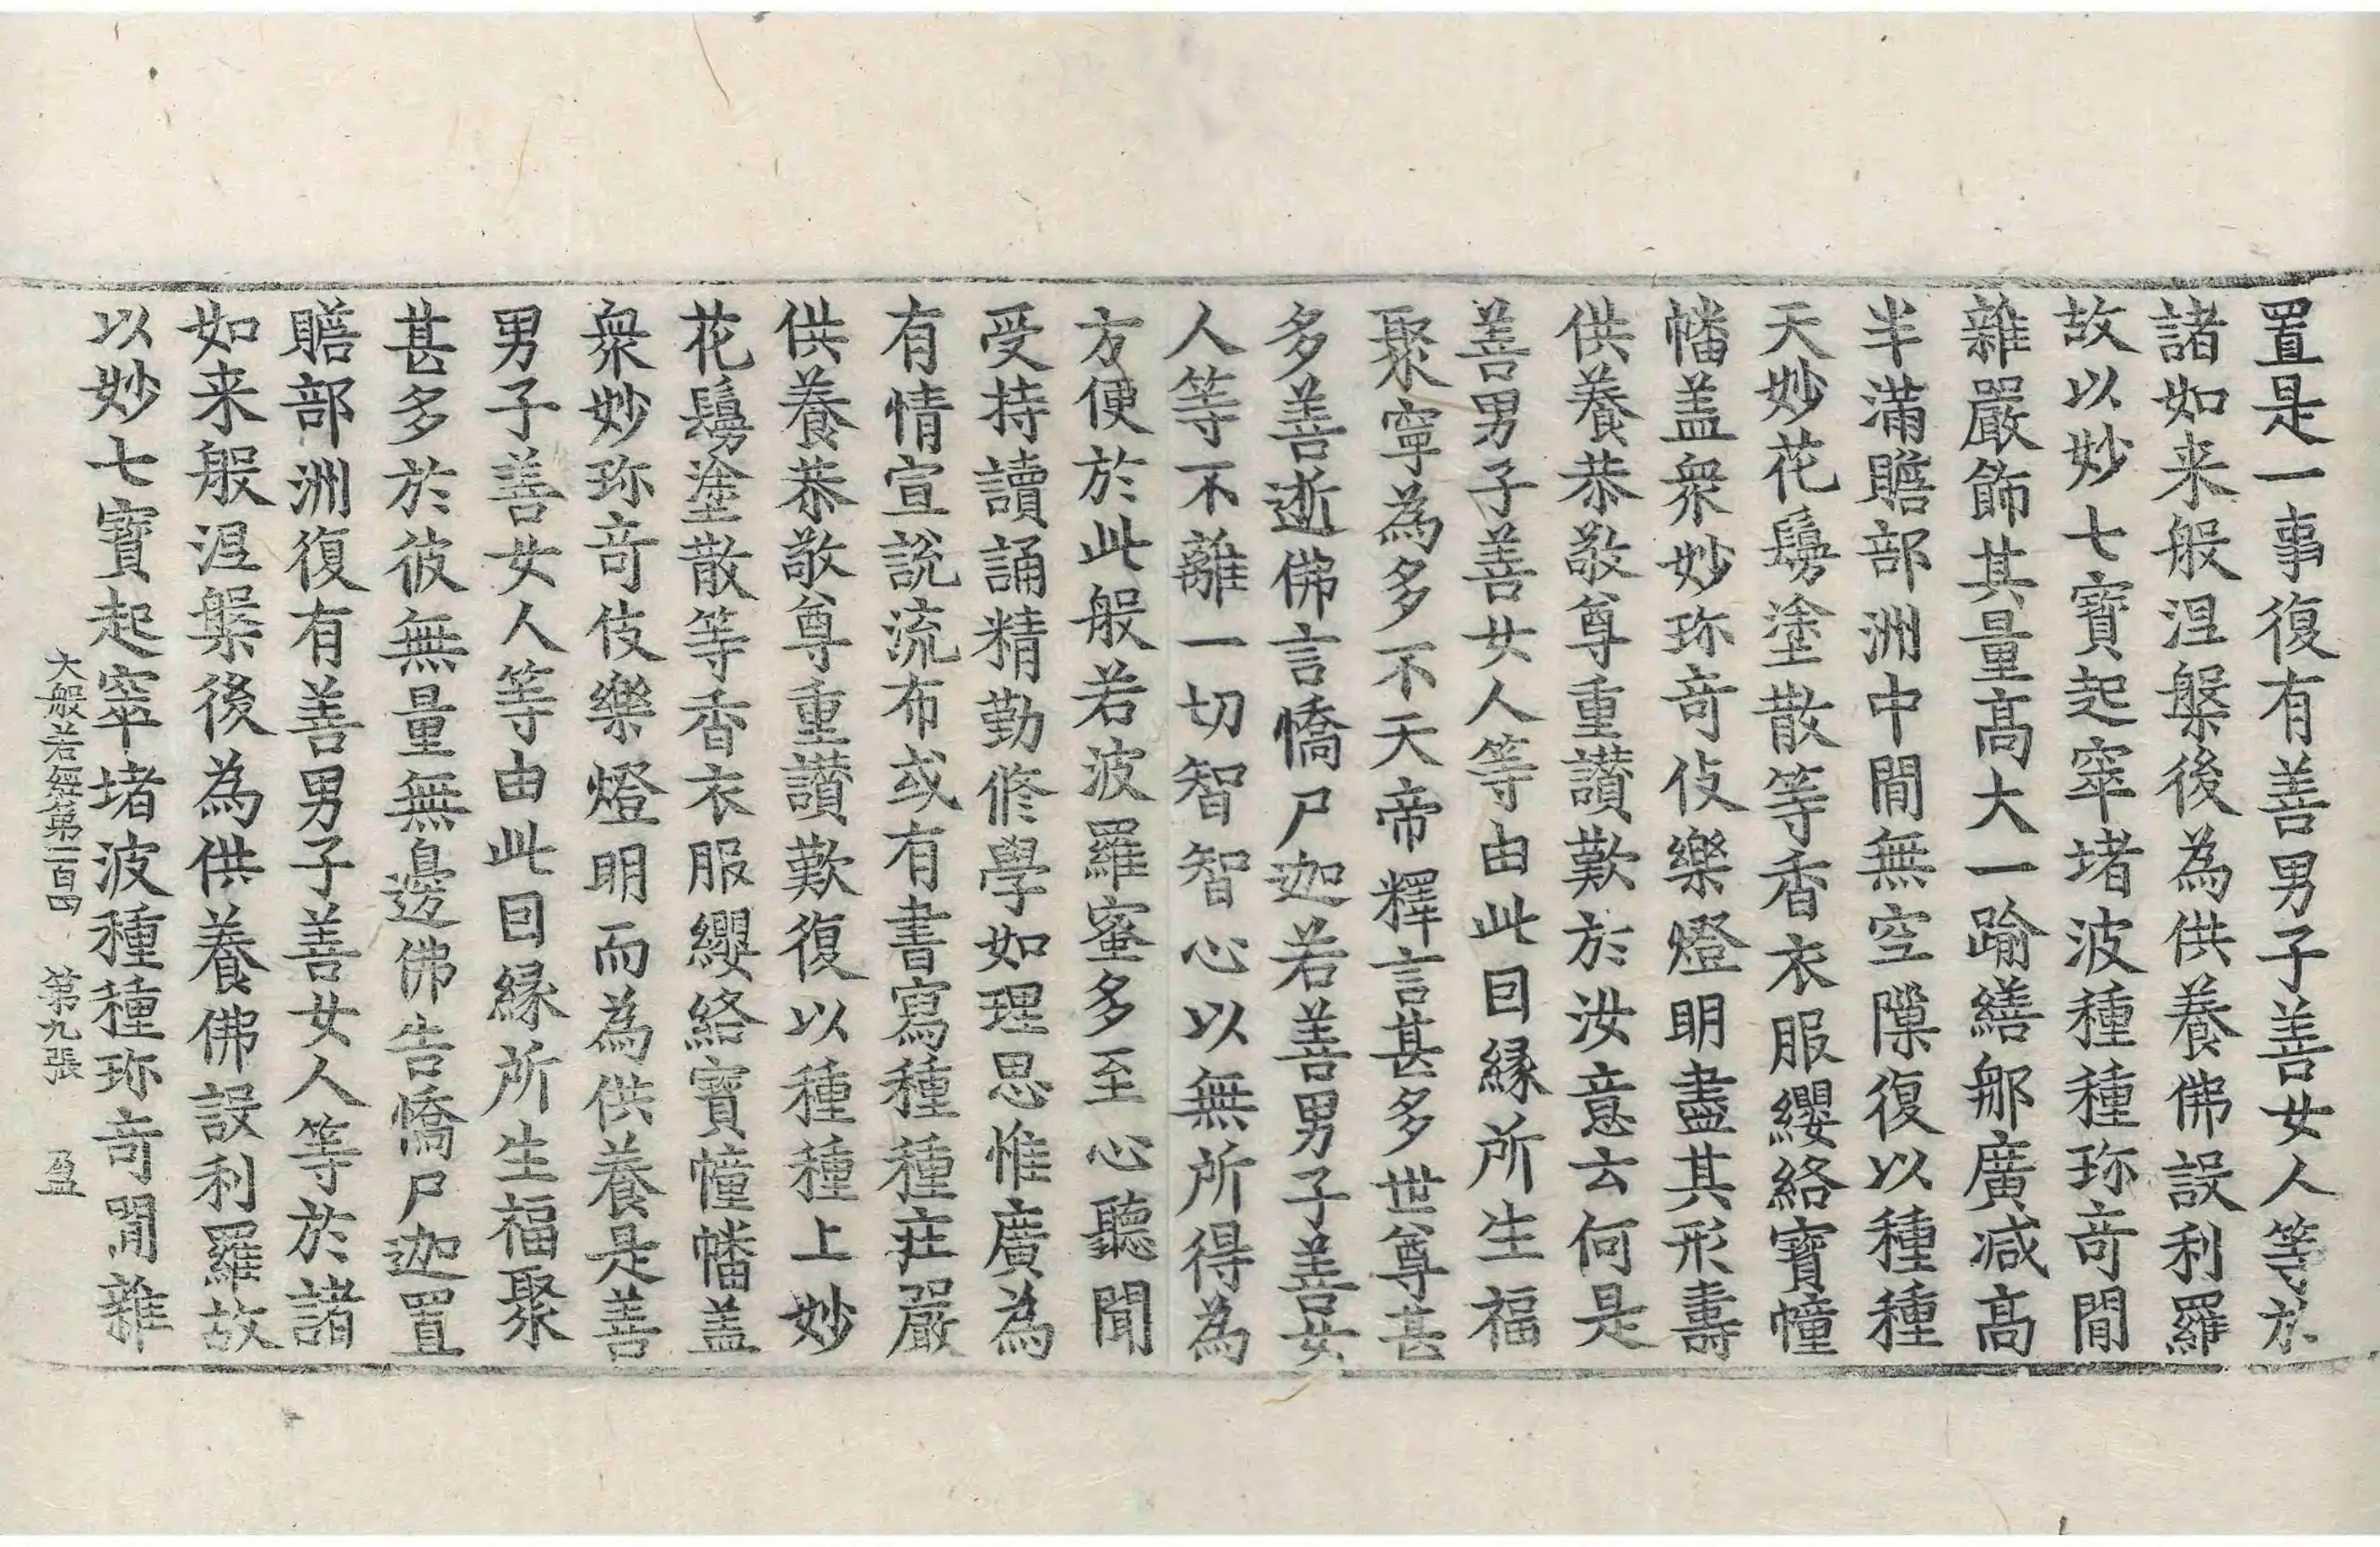 置是一事復有善男子善女人等於
諸如来般涅槃後為供養佛設利羅
故以妙七寶起窣堵波種種珎竒間
雜嚴飾其量髙大一踰繕那廣減髙
半滿贍部洲中間無空隟復以種種
天妙花鬘塗散等香衣服纓絡寶幢
幡盖衆妙珎竒伎樂燈明盡其形壽
供養恭敬尊重讃歎於汝意云何是
善男子善女人等由此囙縁所生福
聚寧為多不天帝釋言甚多世尊甚
多善逝佛言憍尸迦若善男子善女
人等不離一切智智心以無所得為
方便於此般若波羅蜜多至心聽聞
受持讀誦精勤修學如理思惟廣為
有情宣説流布或有書寫種種莊嚴
供養恭敬尊重讃歎復以種種上妙
花鬘塗散等香衣服纓絡寶幢幡盖
衆妙珎竒伎樂燈明而為供養是善
男子善女人等由此囙縁所生福聚
甚多於彼無量無邊佛告憍尸迦置
贍部洲復有善男子善女人等於諸
如来般涅槃後為供養佛設利羅故
以妙七寶起窣堵波種種珎竒間雜
大般若經第一百四 第九張 盈